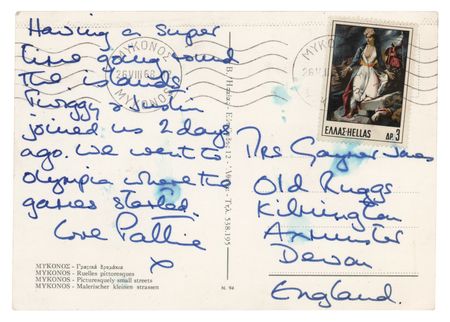 Having a super
time going round
the islands.
Twiggy & Justin
joined us 2 days
ago. We went to
Olympia where the
games started.
Love Pattie
x
ΜΥΚΟΝΟΣ
26 VIII 68
ΜΥΚΟΝΟΣ
ΜΥΚΟΝΟΣ
ΕΛΛΑΣ-HELLAS
ΔΡ. 3
Mrs Gayner Jones
Old Ruggs
Kilmington
Axminster
Devon
England.
12
ΤΗΛ. 538.195
ΜΥΚΟΝΟΣ - Γραφικά δρομάκια
MYKONOS - Ruelles pittoresques
MYKONOS - Picturesquely small streets
MYKONOS - Malerischer kleinen strassen
N. 94